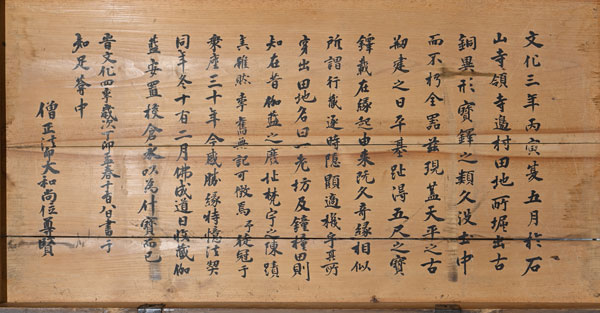 文化三年丙寅夏五月於石
山寺領寺邊村田地所堀出古
銅異形寶鐸之類久没土中
而不朽全器茲現蓋天平之古
剏建之日平基趾得五尺之寶
鐸載在縁起由来既久奇縁相似
所謂行藏逐時隠顕適機乎其所
穿出田地名曰一老坊及鐘撞田則
知在昔伽藍之廢址梵宇之陳蹟
矣雖然奉舊無記可徴焉予従冠于
衆座三十年今感勝縁特憶法契
同年冬十有二月佛成道日慎藏伽
藍安置校倉永以為什寶而已
文化四年歳次丁卯孟春十有八日書于
知足菴中
僧正法印大和尚位尊賢